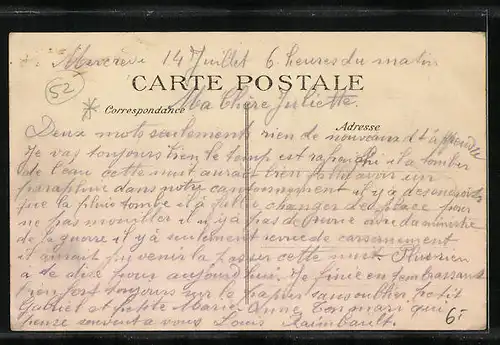 Mercredi 14 Juillet 6 heures du matin
52
CARTE POSTALE
Ma Chère Juliette.
Correspondance
Adresse
Deux mots seulement rien de nouveaux d t'aprendre
Je vas toujours bien le temp est rafraichi il a tomber
de l'eau cette nuit aurait bien fallut avoir un
parapluie dans notre cantonnement il y a des endroits
que la pluie tombe il a fallu changer de place pour
ne pas mouiller il n'y a pas de
de la guerre il y a seulement de cantonnement
il aurait pu venir la passer cette nuit. Plus rien
a te dire pour aujourd'hui. Je finie en t'embrassant
bien fort toujours sur le papier sans oublier petit
Gabriel et petite Marie Anne Ton mari qui
pense souvent a vous Louis Raimbault.
6.-